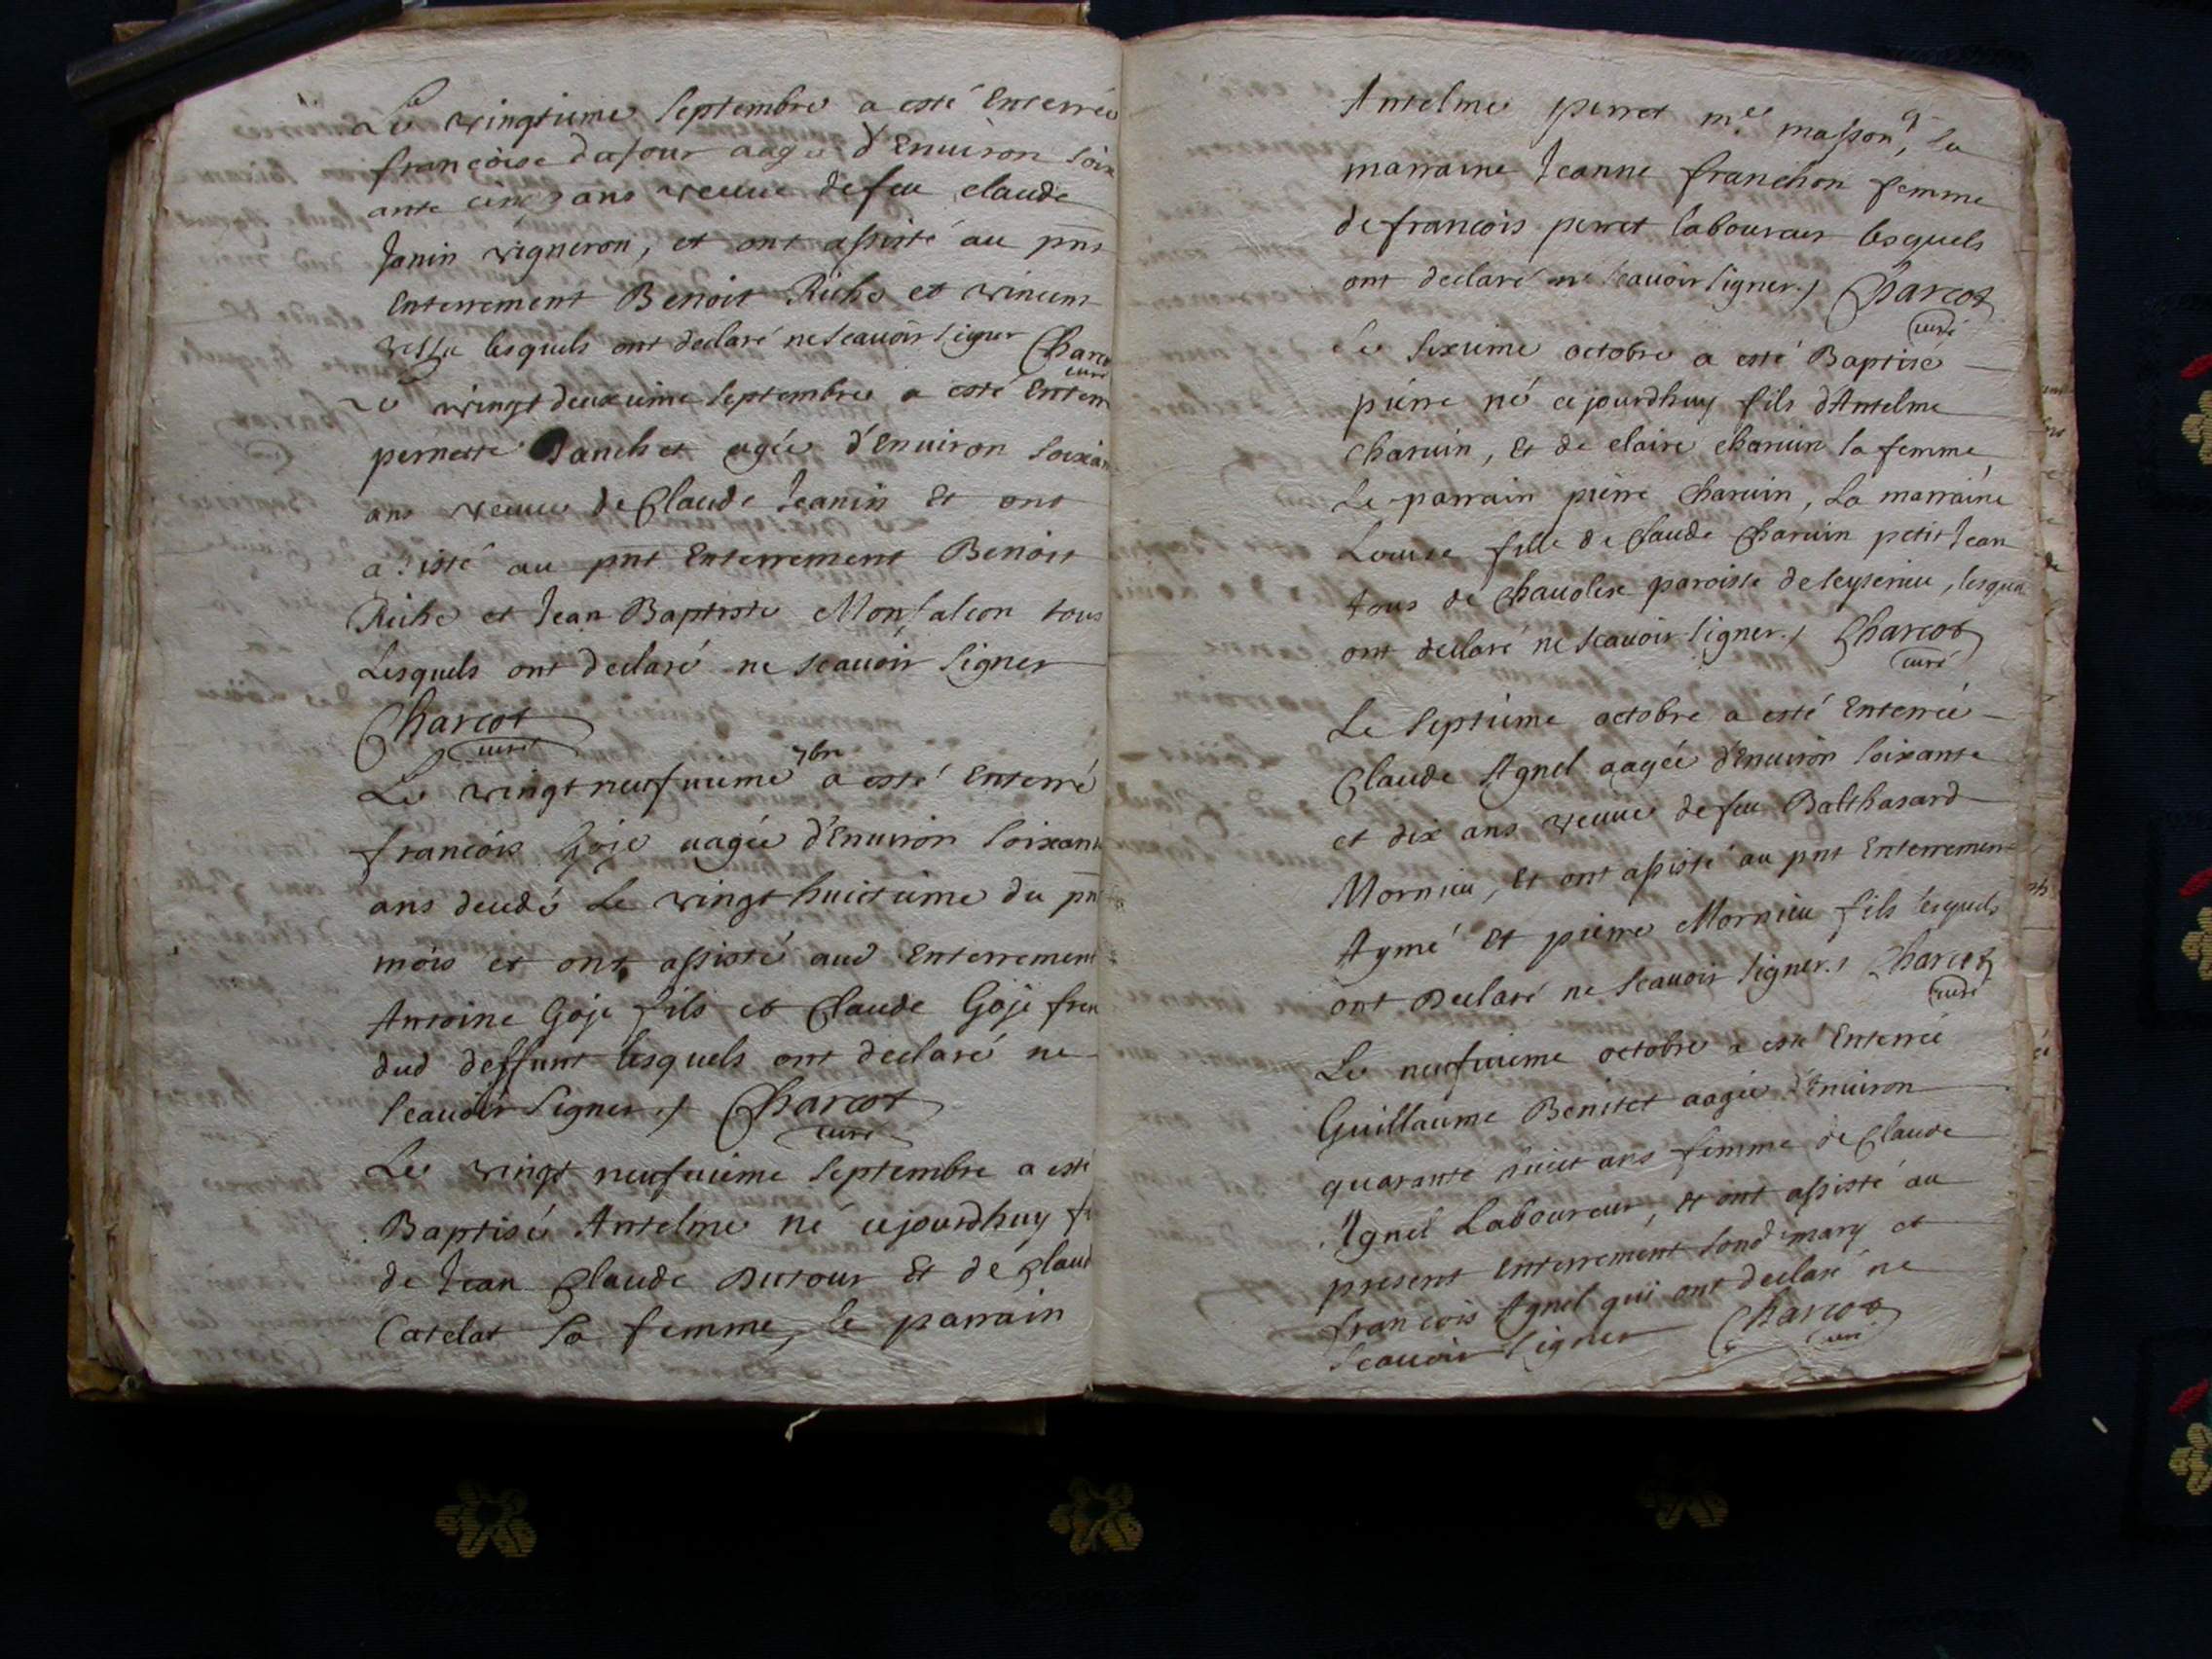 Le vingtieme Septembre a esté Enterrée
françoise dufour aagée d'Enuiron soix
ante cinq ans veuue de feu claude
Janin vigneron, et ont assisté au pnt
Enterrement Benoit Riche et vincent
lesquels ont declaré ne scauoir signer Charco
curé
Le vingt deuxieme Septembre a esté Enterr
pernette Janchet agée d'Enuiron soixan
ans veuue de Claude Jeanin Et ont
assisté au pnt Enterrement Benoit
Riche et Jean Baptiste Monfalcon tous
Lesquels ont declaré ne scauoir signer
Charcot
curé
Le vingt neufuieme 7bre a esté Enterré
francois Goje aagée d'Enuiron soixant
ans decedé Le vingt huictieme du pn
mois et ont assisté aud Enterrement
Antoine Goje fils et Claude Goje frere
dud deffunt lesquels ont declaré ne
scauoir signer ./ Charcot
curé
Le vingt neufuieme Septembre a esté
Baptisé Antelme né cejourdhuy fi
de Jean Claude Dutour Et de Claud
Catelat sa femme, le parrain
Antelme perret me masson, la
marraine Jeanne franchon femme
de francois perret laboureur lesquels
ont declaré ne scauoir signer ./ Charcot
curé
Le sixieme octobre a esté Baptisé
pierre né cejourdhuy fils d'Antelme
Charuin, Et de claire charuin sa femme,
Le parrain pierre Charuin, La marraine
Louise fille de Claude Charuin petit Jean
tous de Chauolere paroisse de leyserieu, lesquel
ont declaré ne scauoir signer ./ Charcot
curé
Le septieme octobre a esté Enterrée
Claude Agnel aagée d'Enuiron soixante
et dix ans veuue de feu Balthasard
Mornieu, Et ont assisté au pnt Enterrement
Aymé Et pierre Mornieu fils lesquels
ont declaré ne scauoir signer ./ Charcot
curé
Le neufuieme octobre a esté Enterrée
Guillaume Benitet aagée d'Enuiron
quarante huict ans femme de Claude
Agnel Laboureur, et ont assisté au
present Enterrement sond mary et
francois Agnel qui ont declaré ne
scauoir signer Charcot
curé